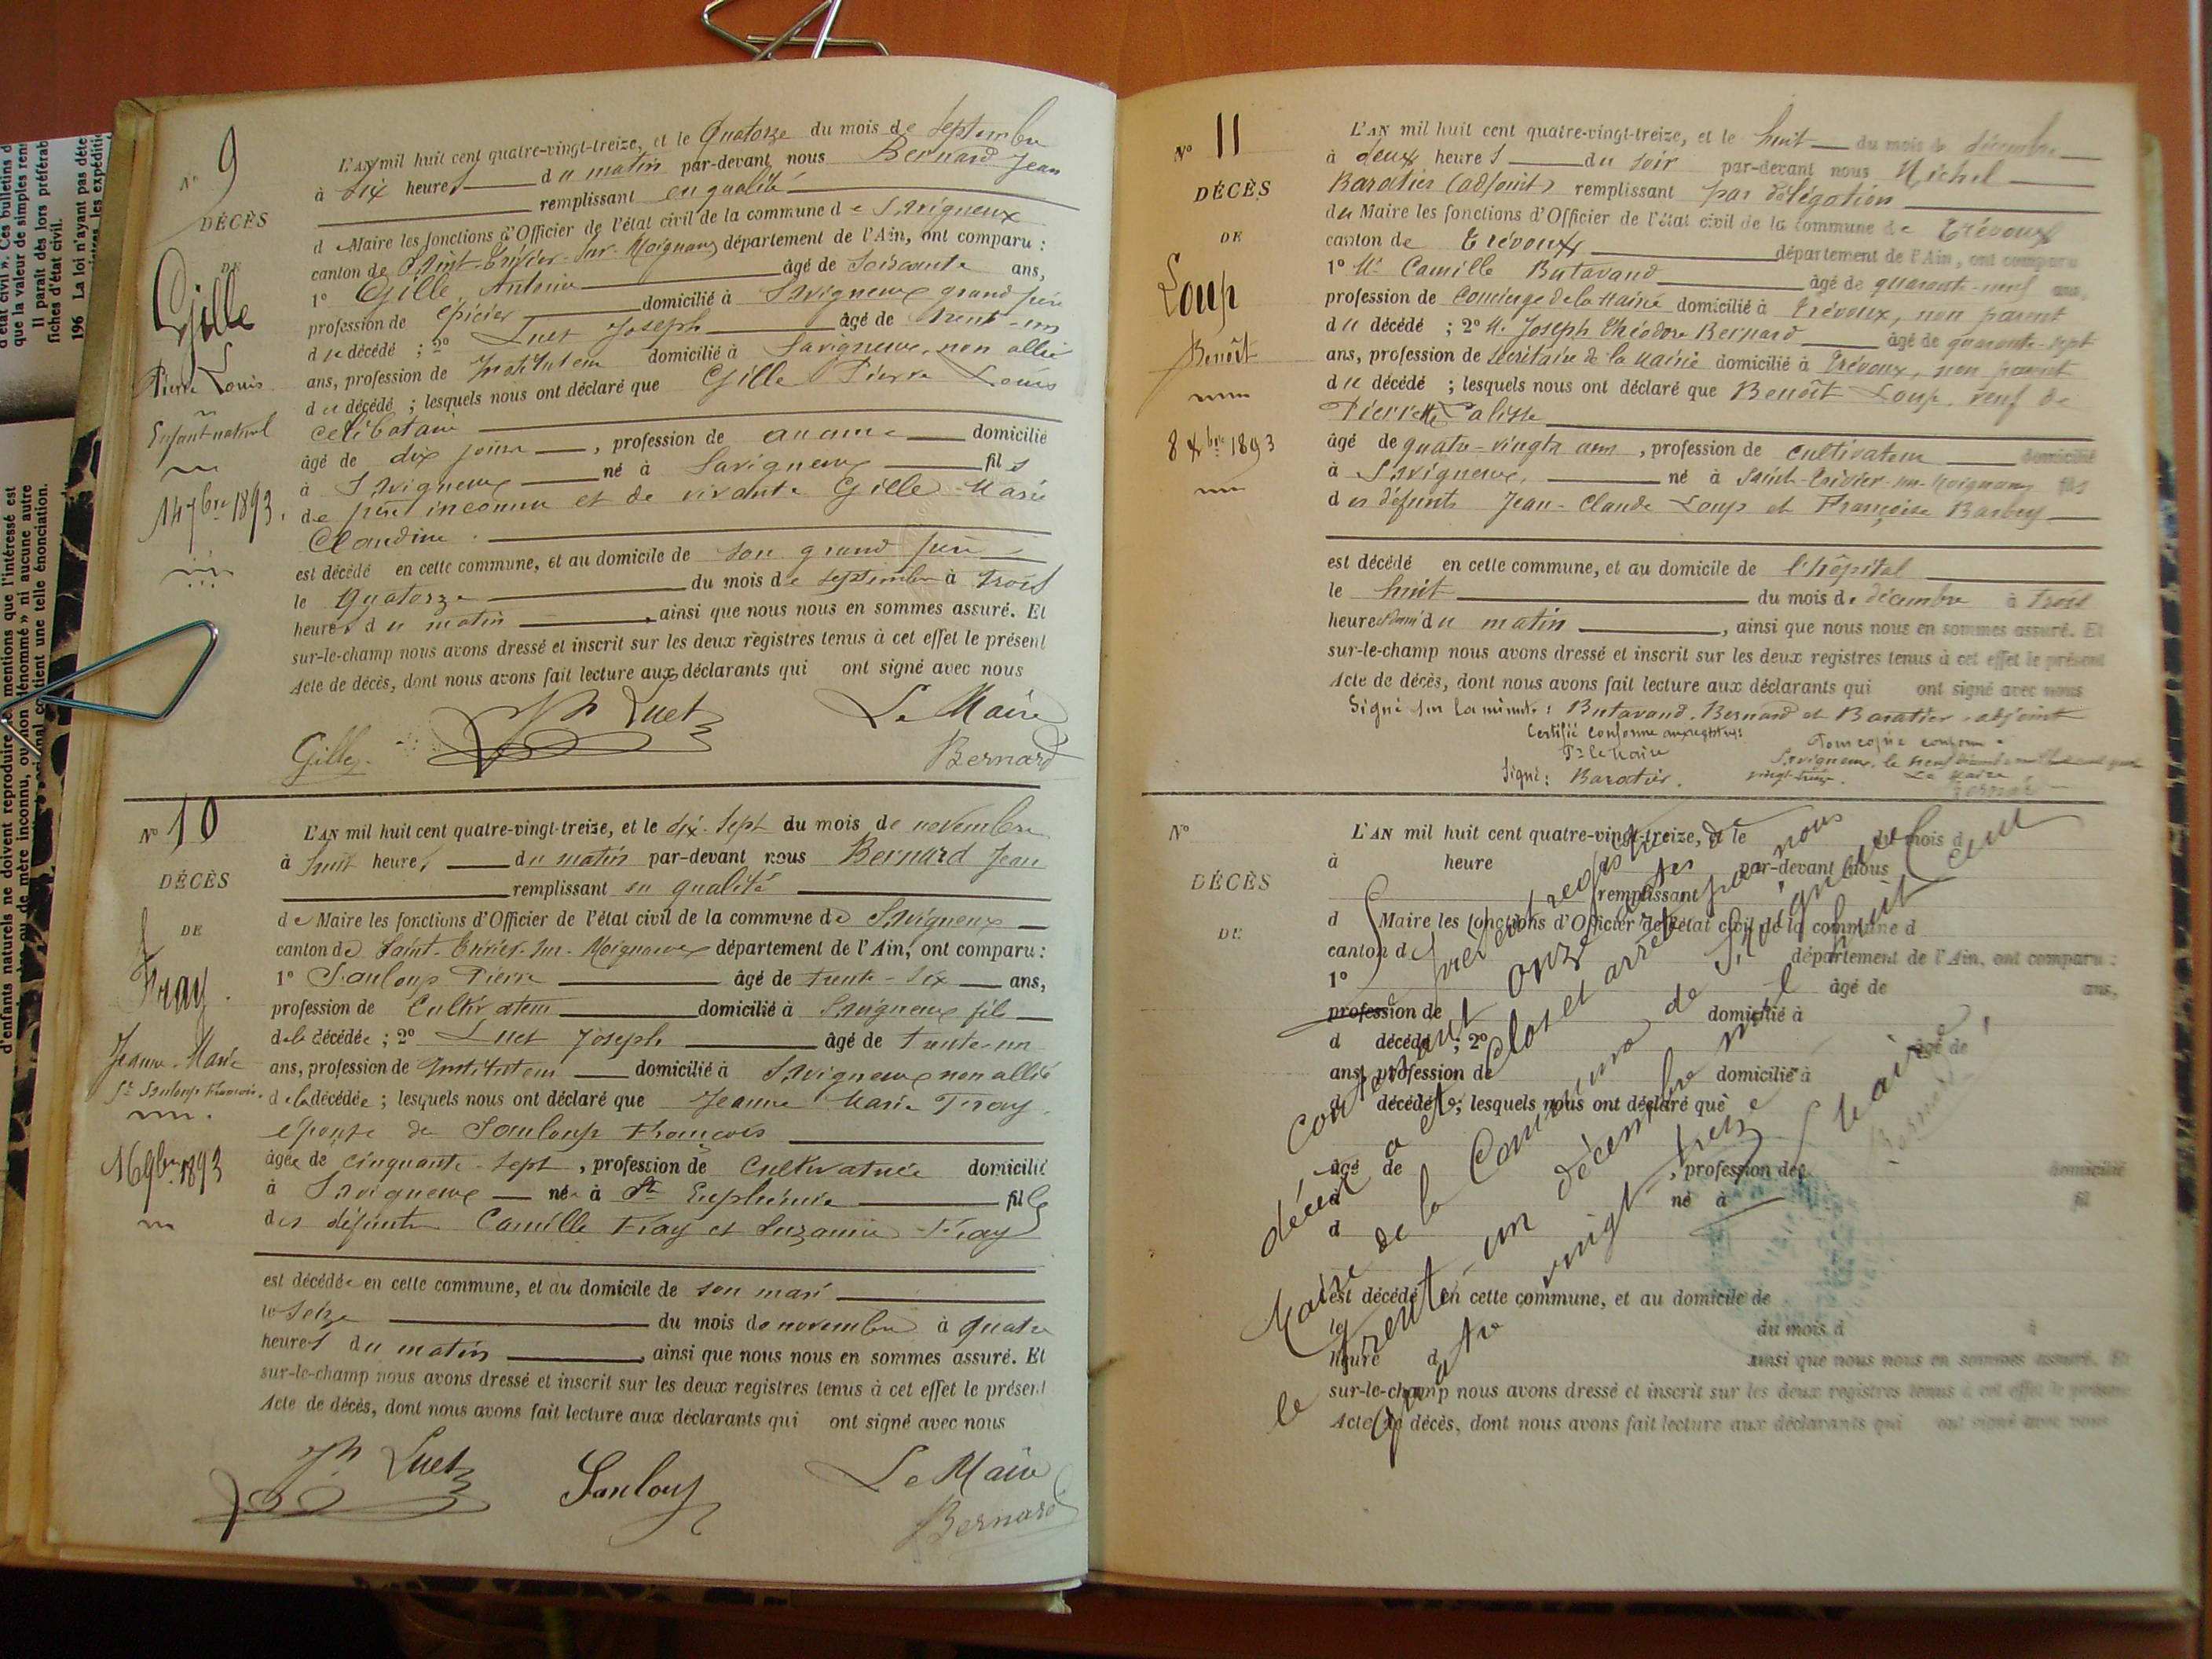 N° 9
DÉCÈS
DE
Gille
Pierre Louis
Enfant naturel
14 7bre 1893.
L'AN mil huit cent quatre-vingt-treize, et le Quatorze du mois de Septembre
à dix heures du matin par-devant nous Bernard Jean
remplissant en qualité
de Maire les fonctions d'Officier de l'état civil de la commune de Savigneux
canton de Saint-Trivier-sur-Moignans département de l'Ain, ont comparu :
1° Gille Antoine âgé de Soixante ans,
profession de épicier domicilié à Savigneux grand père
du décédé ; 2° Luet Joseph âgé de trente-un
ans, profession de Instituteur domicilié à Savigneux, non allié
du décédé ; lesquels nous ont déclaré que Gille Pierre Louis
célibataire
âgé de dix jours, profession de aucune domicilié
à Savigneux né à Savigneux fils
de père inconnu et de vivante Gille Marie
Claudine
est décédé en cette commune, et au domicile de son grand père
le Quatorze du mois de septembre à trois
heures du matin, ainsi que nous nous en sommes assuré. Et
sur-le-champ nous avons dressé et inscrit sur les deux registres tenus à cet effet le présent
Acte de décès, dont nous avons fait lecture aux déclarants qui ont signé avec nous
Gille Jh Luet Le Maire
Bernard
N° 10
DÉCÈS
DE
Fray
Jeanne-Marie
Fe Sauloup François
16 9bre 1893
L'AN mil huit cent quatre-vingt-treize, et le dix-sept du mois de novembre
à huit heures du matin par-devant nous Bernard Jean
remplissant en qualité
de Maire les fonctions d'Officier de l'état civil de la commune de Savigneux
canton de Saint-Trivier-sur-Moignans département de l'Ain, ont comparu :
1° Sauloup Pierre âgé de trente-six ans,
profession de Cultivateur domicilié à Savigneux fils
de la décédée ; 2° Luet Joseph âgé de trente-un
ans, profession de Instituteur domicilié à Savigneux non allié
de la décédée ; lesquels nous ont déclaré que Jeanne Marie Fray
épouse de Sauloup François
âgée de cinquante-sept, profession de Cultivatrice domicilié
à Savigneux née à Ste Euphémie fille
des défunts Camille Fray et Suzanne Fray
est décédée en cette commune, et au domicile de son mari
le seize du mois de novembre à quatre
heures du matin, ainsi que nous nous en sommes assuré. Et
sur-le-champ nous avons dressé et inscrit sur les deux registres tenus à cet effet le présent
Acte de décès, dont nous avons fait lecture aux déclarants qui ont signé avec nous
Jh Luet Sauloup Le Maire
Bernard
N° 11
DÉCÈS
DE
Loup
Benoît
8 Xbre 1893
L'AN mil huit cent quatre-vingt-treize, et le huit du mois de décembre
à deux heures du soir par-devant nous Michel
Baratier (adjoint) remplissant par délégation
du Maire les fonctions d'Officier de l'état civil de la commune de Trévoux
canton de Trévoux département de l'Ain, ont comparu
1° M. Camille Butavand âgé de quarante-neuf ans,
profession de Concierge de la Mairie domicilié à Trévoux, non parent
du décédé ; 2° M. Joseph Théodore Bernard âgé de quarante-sept
ans, profession de Secrétaire de la Mairie domicilié à Trévoux, non parent
du décédé ; lesquels nous ont déclaré que Benoît Loup, veuf de
Pierrette Palisse
âgé de quatre-vingts ans, profession de cultivateur domicilié
à Savigneux, né à Saint-Trivier-sur-Moignans fils
des défunts Jean-Claude Loup et Françoise Barbey
est décédé en cette commune, et au domicile de l'hôpital
le huit du mois de décembre à trois
heures et demi du matin, ainsi que nous nous en sommes assuré. Et
sur-le-champ nous avons dressé et inscrit sur les deux registres tenus à cet effet le présent
Acte de décès, dont nous avons fait lecture aux déclarants qui ont signé avec nous
Signé sur la minute : Butavand, Bernard et Baratier, adjoint
Certifié conforme aux registres
Pr le Maire
Signé : Baratier.
Pour copie conforme
Savigneux, le
vingt-treize. Le Maire
Bernard
N°
DÉCÈS
DE
L'AN mil huit cent quatre-vingt-treize, et le du mois d
à heure d par-devant nous
remplissant
d Maire les fonctions d'Officier de l'état civil de la commune d
canton d département de l'Ain, ont comparu :
1° âgé de ans,
profession de domicilié à
d décédé ; 2° âgé de
ans, profession de domicilié à
d décédé ; lesquels nous ont déclaré que
âgé de , profession de domicilié
à né à fil
d
est décédé en cette commune, et au domicile de
le du mois d à
heure d ainsi que nous nous en sommes assuré. Et
sur-le-champ nous avons dressé et inscrit sur les deux registres tenus à cet effet le présent
Acte de décès, dont nous avons fait lecture aux déclarants qui ont signé avec nous
Le présent registre
contenant onze actes de
décès a été clos et arrêté par nous
Maire de la Commune de Savigneux
le trente-un décembre mil huit cent
quatre vingt treize
Le Maire,
Bernard